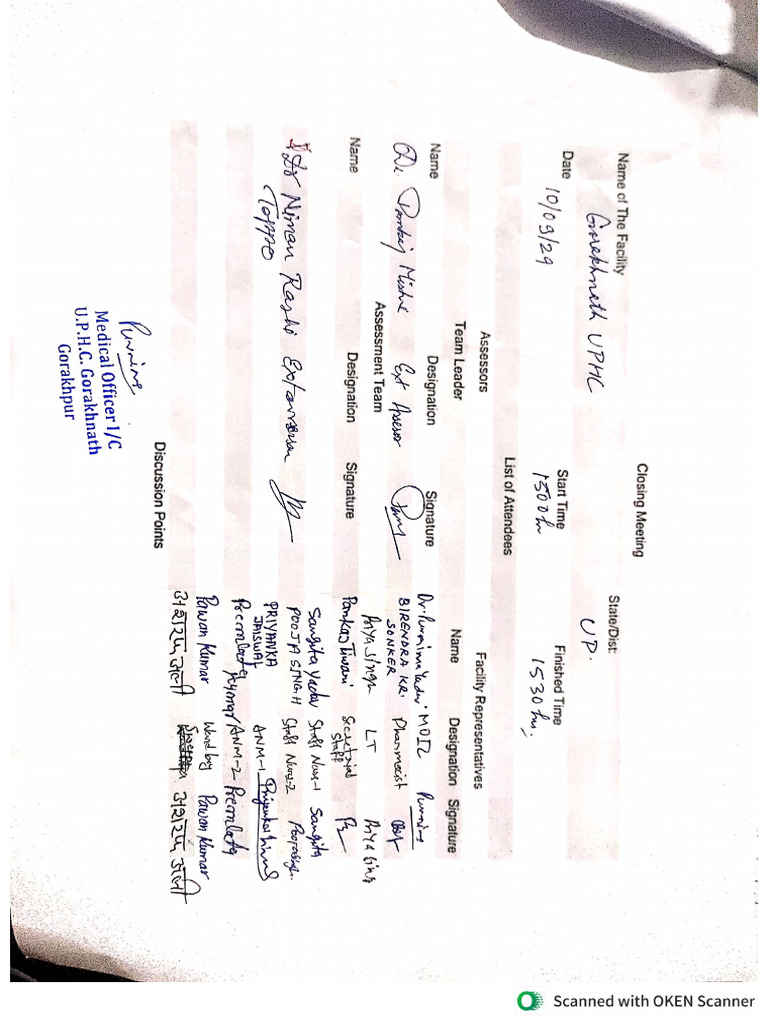 Closing Meeting
Name of The Facility Gorakhnath UPHC State/Dist: UP.
Date 10/09/24 Start Time 1500hr Finished Time 1530 hrs.
List of Attendees
Assessors Facility Representatives
Team Leader Name Designation Signature
Name Designation Signature Dr. Purnima Yadav MOIC Purnima
Dr. Pankaj Mishra Ext Assessor BIRENDRA KR. SONKER Pharmacist
Assessment Team Priya singh LT Priya Singh
Name Designation Signature Pankaj Tiwari Secretarial Staff
Sangita Yadav Staff Nurse-1 Sangita
Dr Niman Rashi Toppo POOJA SINGH Staff Nurse-2
PRIYANKA JAISWAL ANM-1
Premlata ANM-2 Premlata
Pawan Kumar Ward boy Pawan Kumar
Discussion Points
Purnima
Medical Officer I/C
U.P.H.C. Gorakhnath
Gorakhpur
Scanned with OKEN Scanner